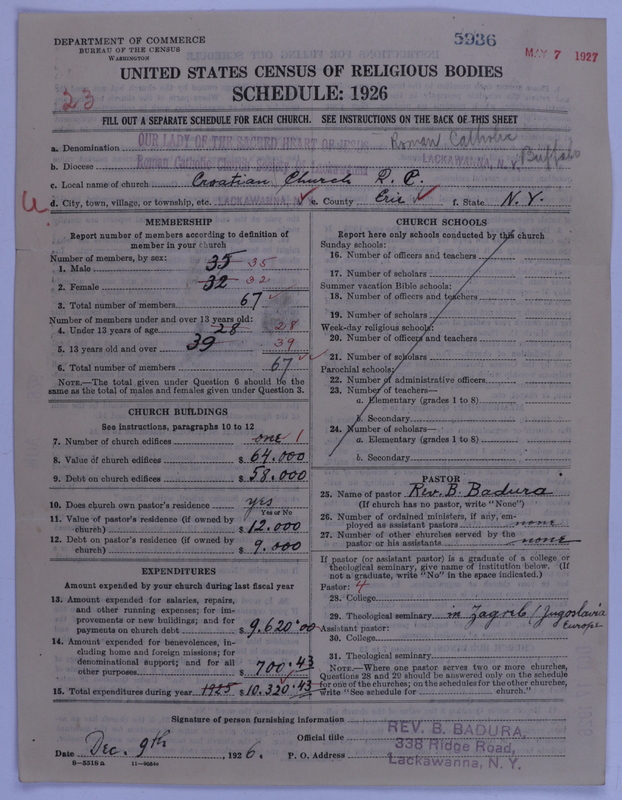 DEPARTMENT OF COMMERCE
BUREAU OF THE CENSUS
WASHINGTON
5936
MAY 7 1927
UNITED STATES CENSUS OF RELIGIOUS BODIES
23
SCHEDULE: 1926
FILL OUT A SEPARATE SCHEDULE FOR EACH CHURCH. SEE INSTRUCTIONS ON THE BACK OF THIS SHEET
a. Denomination OUR LADY OF THE SACRED HEART OF JESUS Roman Catholic
b. Diocese Roman Catholic Church LACKAWANNA, N. Y. Buffalo
c. Local name of church Croatian Church R. C.
d. City, town, village, or township, etc. LACKAWANNA, N. e. County Erie f. State N. Y.
MEMBERSHIP
Report number of members according to definition of member in your church
Number of members, by sex:
1. Male 35 35
2. Female 32 32
3. Total number of members 67
Number of members under and over 13 years old:
4. Under 13 years of age 28 28
5. 13 years old and over 39 39
6. Total number of members 67
NOTE.—The total given under Question 6 should be the
same as the total of males and females given under Question 3.
CHURCH BUILDINGS
See instructions, paragraphs 10 to 12
7. Number of church edifices one 1
8. Value of church edifices $ 64.000
9. Debt on church edifices $ 58.000
10. Does church own pastor's residence yes
Yes or No
11. Value of pastor's residence (if owned by
church) $ 12.000
12. Debt on pastor's residence (if owned by
church) $ 9.000
EXPENDITURES
Amount expended by your church during last fiscal year
13. Amount expended for salaries, repairs,
and other running expenses; for im-
provements or new buildings; and for
payments on church debt $ 9.620.00
14. Amount expended for benevolences, in-
cluding home and foreign missions; for
denominational support; and for all
other purposes $ 700.43
15. Total expenditures during year 1925 $ 10.320.43
CHURCH SCHOOLS
Report here only schools conducted by this church
Sunday schools:
16. Number of officers and teachers
17. Number of scholars
Summer vacation Bible schools:
18. Number of officers and teachers
19. Number of scholars
Week-day religious schools:
20. Number of officers and teachers
21. Number of scholars
Parochial schools:
22. Number of administrative officers
23. Number of teachers—
a. Elementary (grades 1 to 8)
b. Secondary
24. Number of scholars—
a. Elementary (grades 1 to 8)
b. Secondary
PASTOR
25. Name of pastor Rev. B. Badura
(If church has no pastor, write "None")
26. Number of ordained ministers, if any, em-
ployed as assistant pastors none
27. Number of other churches served by the
pastor or his assistants none
If pastor (or assistant pastor) is a graduate of a college or
theological seminary, give name of institution below. (If
not a graduate, write "No" in the space indicated.)
Pastor: 4
28. College
29. Theological seminary in Zagreb / Jugoslavia
Assistant pastor: Europe
30. College
31. Theological seminary
NOTE.—Where one pastor serves two or more churches,
Questions 28 and 29 should be answered only on the schedule
for one of the churches; on the schedules for the other churches,
write "See schedule for church."
Signature of person furnishing information
Official title REV. B. BADURA,
Date Dec. 9th, 1926. P. O. Address 338 Ridge Road,
Lackawanna, N. Y.
8—5318 a